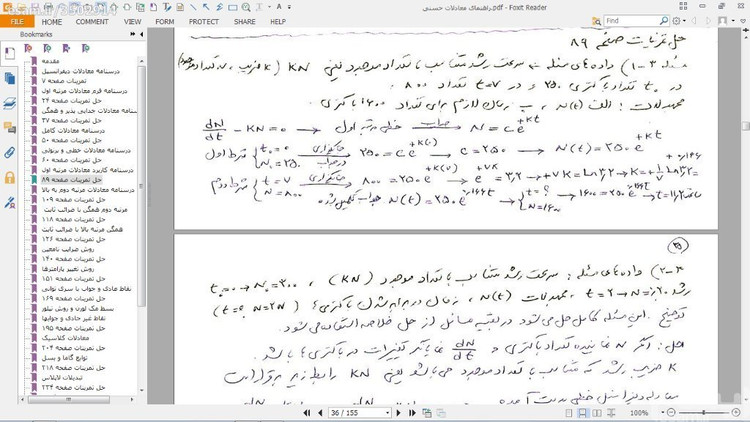 راهنمای معادلات حسنی.pdf - Foxit Reader
FILE
HOME
COMMENT
VIEW
FORM
PROTECT
SHARE
HELP
Find
Bookmarks
مقدمه
درسنامه معادلات دیفرانسیل
تمرینات صفحه ۷
درسنامه فرم معادلات مرتبه اول
حل تمرینات صفحه ۲۴
معادلات جدایی پذیر و همگن
حل تمرینات صفحه ۳۷
درسنامه معادلات کامل
حل تمرینات صفحه ۵۰
درسنامه معادلات خطی و برنولی
حل تمرینات صفحه ۶۰
درسنامه کاربرد معادلات مرتبه اول
حل تمرینات صفحه ۸۹
درسنامه معادلات مرتبه دوم به بالا
حل تمرینات صفحه ۱۰۹
مرتبه دوم همگن با ضرائب ثابت
حل تمرینات صفحه ۱۱۸
همگن مرتبه بالا با ضرائب ثابت
حل تمرینات صفحه ۱۲۶
روش ضرائب نامعین
حل تمرینات صفحه ۱۴۰
روش تغییر پارامترها
حل تمرینات صفحه ۱۵۱
نقاط عادی و جواب با سری توانی
حل تمرینات صفحه ۱۶۹
بسط مک لورن و روش تیلور
نقاط غیر عادی و جوابها
حل تمرینات صفحه ۱۹۵
معادلات کلاسیک
حل تمرینات صفحه ۲۰۴
توابع گاما و بسل
حل تمرینات صفحه ۲۱۸
تبدیلات لاپلاس
حل تمرینات صفحه ۲۳۴
حل تمرینات صفحه ۸۹
مسئله ۳-۱) داده های مسئله: سرعت رشد متناسب با تعداد موجود یعنی KN (K ضریب، N تعداد موجود)
در t=0 تعداد باکتری ۲۵۰ و در t=۷ تعداد ۸۰۰
مجهولات: الف) N(t)، ب) زمان لازم برای تعداد ۱۶۰۰ باکتری.
dN/dt - KN = 0 → خطی مرتبه اول → جواب N = ce^{+Kt}
شرط اول {t₀=0, N₀=۲۵۰ → جایگزاری در جواب ۲۵۰ = ce^{+K(0)} → c=۲۵۰ → N(t)=۲۵۰e^{+Kt}
شرط دوم {t=۷, N=۸۰۰ → جایگزاری ۸۰۰=۲۵۰e^{+K(۷)} → e^{+۷K}=۳٫۲ → +۷K=Ln۳٫۲ → K=+۱/۷ Ln۳٫۲=+۰٫۱۶۶
جواب تکمیل شده N(t)=۲۵۰e^{۰٫۱۶۶t} → {t=?, N=۱۶۰۰ → ۱۶۰۰=۲۵۰e^{۰٫۱۶۶t} → t=۱۱٫۲ ساعت
۳۵
۳-۲) داده های مسئله: سرعت رشد متناسب با تعداد موجود (KN)، t₀=0 → N₀=۳۰۰
رشد ۲۰٪ = N → t=۲، مجهولات N(t)، زمان دو برابر شدن باکتری؟ (t=? N=۲N₀)
توضیح: این مسئله کامل حل می شود در بقیه مسائل از حل خلاصه استفاده می شود.
حل: اگر N نماینده تعداد باکتری و dN/dt نمایانگر تغییرات در باکتری ها باشد.
K ضریب رشد که متناسب با تعداد موجود می باشد یعنی KN رابطه زیر برقرار است
36 / 155
100%